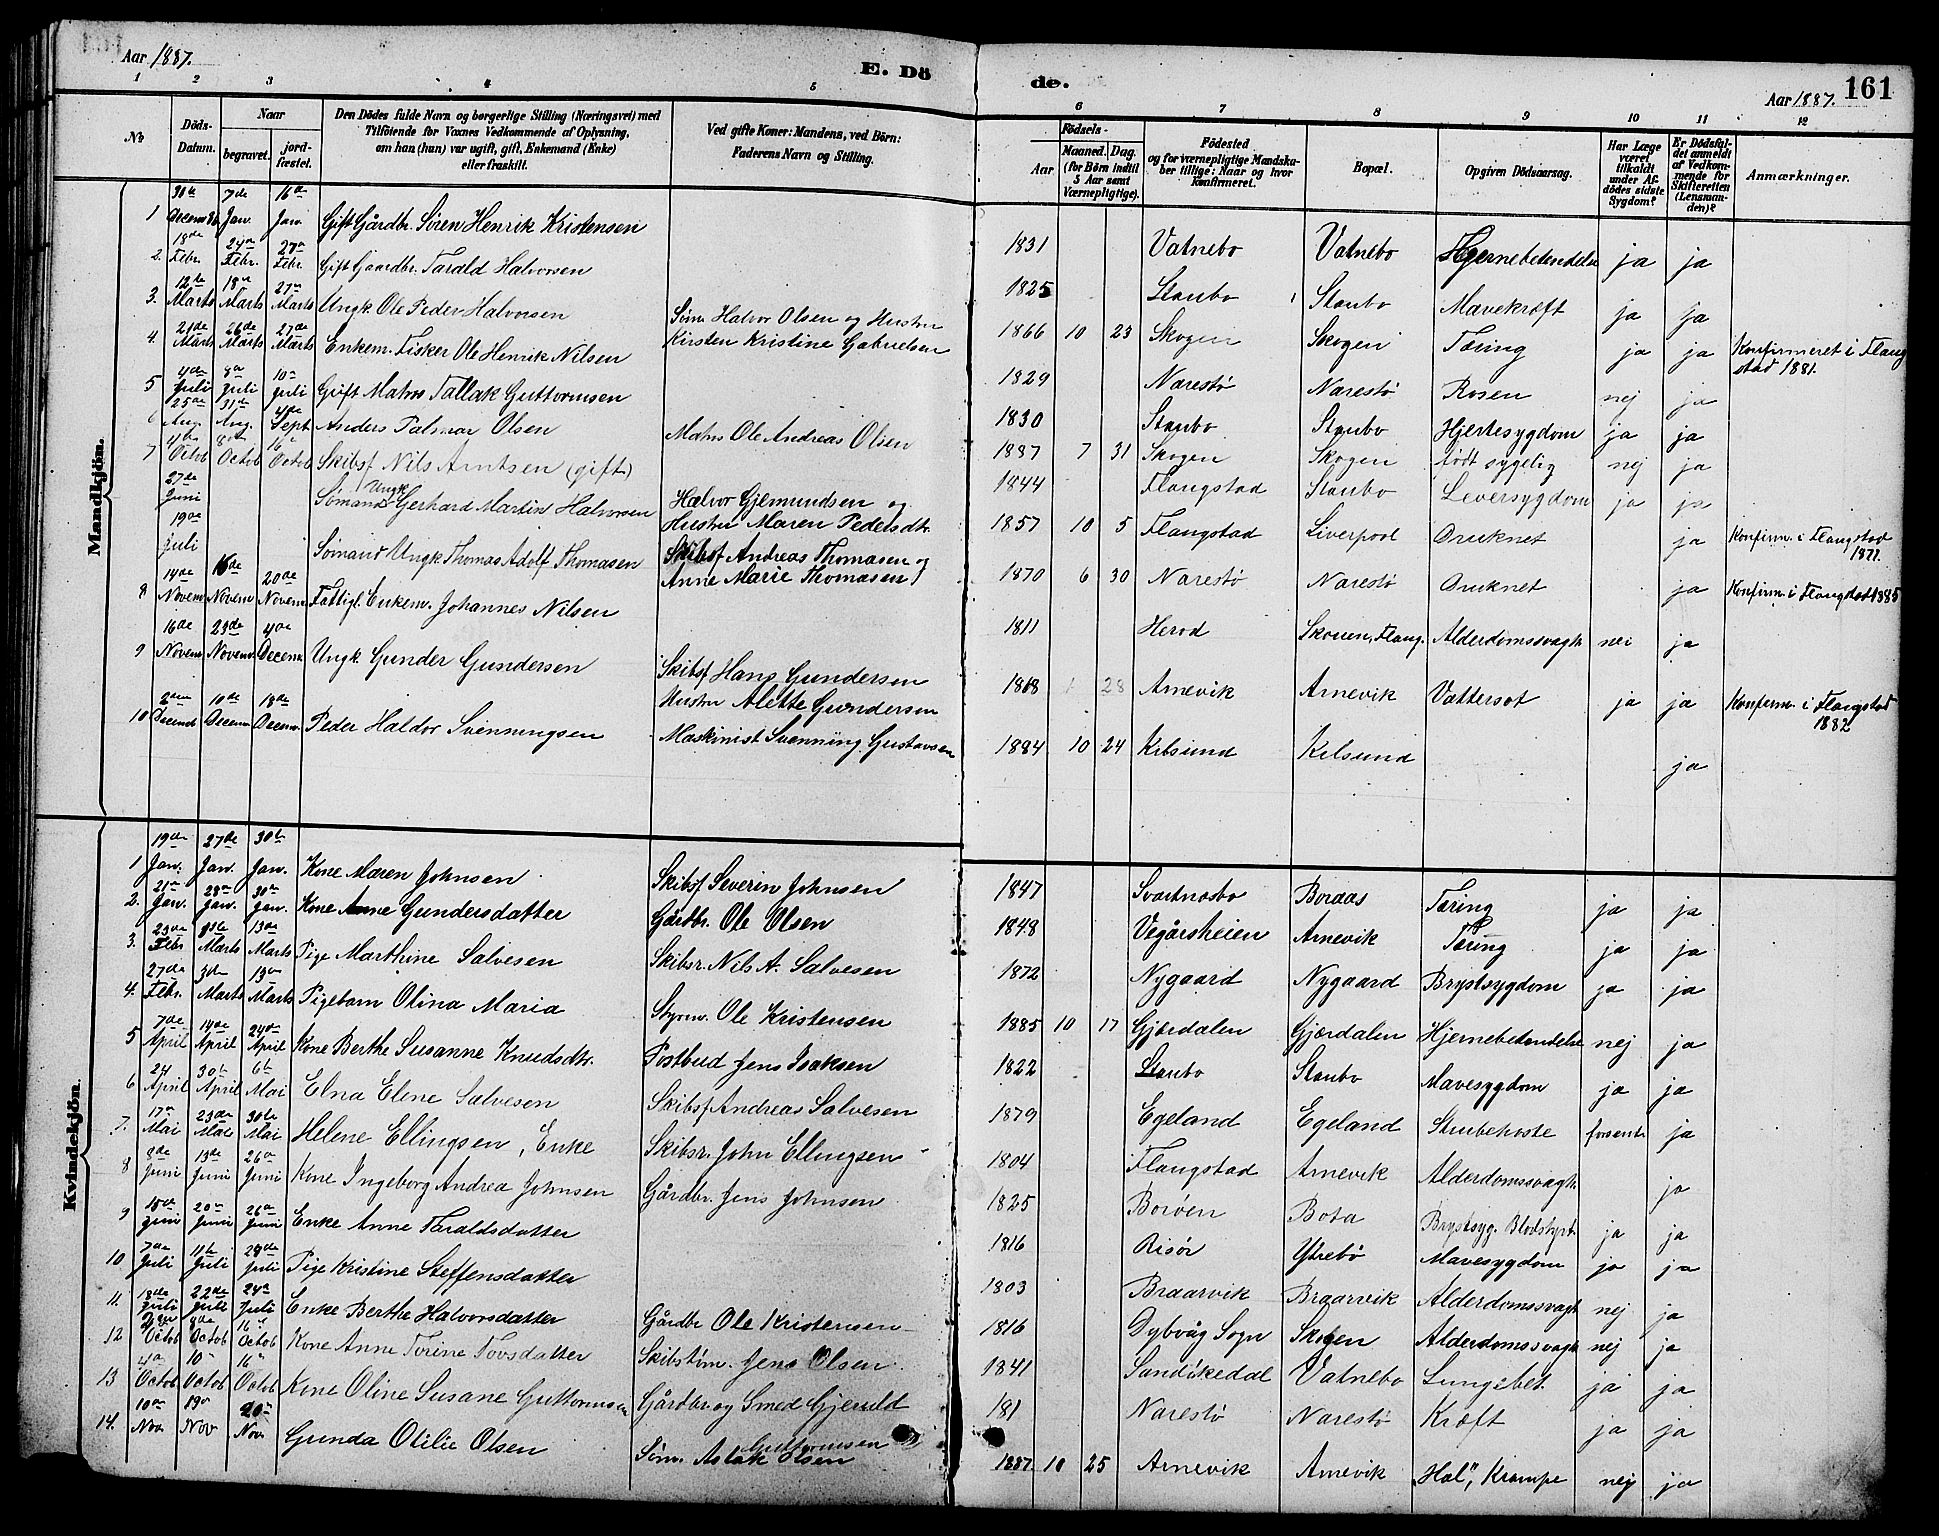 Aar 1887.
E. Dö
de.
Aar 1887.
161
1 2 3 4 5 6 7 8 9 10 11 12
No
Döds-Datum.
Naar
begravet.
jordfæstet.
Den Dödes fulde Navn og borgerlige Stilling (Næringsvei) med
Tilföiende for Voxnes Vedkommende af Oplysning,
om han (hun) var ugift, gift, Enkemand (Enke)
eller fraskilt.
Ved gifte Koner: Mandens, ved Börn:
Faderens Navn og Stilling.
Födsels-
Aar
Maaned. Dag.
(for Börn indtil
5 Aar samt
Værnepligtige).
Födested
og for værnepligtige Mandskaber tillige: Naar og hvor
Konfirmeret.
Bopæl.
Opgiven Dödsaarsag.
Har Læge
været
tilkaldt
under Afdödes sidste
Sygdom?
Er Dödsfaldet anmeldt
af Vedkommende for
Skifteretten
(Lensmanden)?
Anmærkninger.
Mandkjön.
1 30te Decemb. 7de Jan. 16de Jan. Gift Gårdbr. Sören Henrik Kristensen 1831 Vatnebo Vatnebo Hjernebetendelse ja ja
2. 18de Febr. 24de Febr. 27de Febr. Gift Gaardbr. Tarald Halvorsen 1825 Staubo Staubo Mavekræft ja ja
3. 12te Marts 18de Marts 27de Marts Ungk. Ole Peder Halvorsen Søm. Halvor Olsen og Hustru Kirsten Kristine Gabrielsen 1866 10 23 Skogen Skogen Tæring ja ja Konfirmeret i Flangstad 1881.
4. 21de Marts 26de Marts 27de Marts Enkem. Fisker Ole Henrik Nilsen 1829 Narestø Narestø Rosen nej ja
5 4de Juli 8de Juli 10de Juli Gift Matros Tallak Guttormsen 1830 Staubo Staubo Hjertesygdom ja ja
6 25de Aug. 31de Aug. 4de Sept Anders Palmar Olsen Matros Ole Andreas Olsen 1887 7 31 Skogen Skogen født sygelig nej ja
7 4de Octob 8de Octob 16de Octob Skibsf Nils Arntsen (gift) 1844 Flangstad Staubo Leversygdom ja ja
27de Juni Sømand Ungk. Gerhard Martin Halvorsen Halvor Gjemundsen og Hustru Maren Pedersdtr. 1857 10 5 Flangstad Liverpool Druknet ja Konfirm. i Flangstad 1871.
19de Juli Sømand Ungk. Thomas Adolf Thomasen Skibsf Andreas Thomasen og Anne Marie Thomasen 1870 6 30 Narestø Narestø Druknet ja Konfirm. i Flangstad 1885
8 14de Novem 16de Novem 20de Novem Fattigl. Enkem. Johannes Nilsen 1811 Herod Skouen, Flang. Alderdomssvagh. nei ja
9 16de Novem 23de Novem 4de Decem Ungk. Gunder Gundersen Skibsf Hans Gundersen Hustru Alette Gundersen 1868 28 Arnevik Arnevik Vattersot ja ja Konfirm. i Flangstad 1882
10 2den Decemb 10de Decem 18de Decem Peder Haldor Svenningsen Maskinist Svenning Gustavsen 1884 10 24 Kilsund Kilsund ja
Kvindekjön.
1 19de Jan. 27de Jan. 30te Jan. Kone Maren Johnsen Skibsf Severin Johnsen 1847 Svartnæsbo Boraas Tæring ja ja
2. 21de Jan. 28de Jan. 30te Jan. Kone Anne Gundersdatter Gårdbr. Ole Olsen 1848 Vegårsheien Arnevik Tæring ja ja
3. 23de Febr 8de Marts 13de Marts Pige Marthine Salvesen Skibsr. Nils A. Salvesen 1872 Nygaard Nygaard Brystsygdom ja ja
4. 27de Febr. 3die Marts 13de Marts Pigebarn Olina Maria Styrm. Ole Kristensen 1885 10 17 Gjærdalen Gjærdalen Hjernebetendelse nej ja
5 7de April 14de April 24de April Kone Berthe Susanne Knudsdtr. Postbud Jens Isaksen 1822 Staubo Staubo Mavesygdom ja ja
6 24 April 30te April 6te Mai Elna Elene Salvesen Skibsf Andreas Salvesen 1879 Egeland Egeland Strubehoste forsent ja
7. 17de Mai 23de Mai 30te Mai Helene Ellingsen, Enke Skibsr. John Ellingsen 1804 Flangstad Arnevik Alderdomssvagh. ja
8 8de Juni 13de Juni 26de Juni Kone Ingeborg Andrea Johnsen Gårdbr. Jens Johnsen 1825 Borøen Bota Brystsyg. Blodstyrt. ja ja
9 15de Juni 20de Juni 26de Juni Enke Anne Taraldsdatter 1816 Risør Ytrebö Mavesygdom ja ja
10 7de Juli 11te Juli 24de Juli Pige Kristine Steffensdatter 1803 Braarvik Braarvik Alderdomssvagh nej ja
11. 18de Juli 22de Juli 24de Juli Enke Berthe Halvorsdatter Gårdbr Ole Kristensen 1816 Dybvåg Sogn Skogen Alderdomssvagh nej ja
12 Octob 8de Octob 16de Octob Kone Anne Torine Tovsdatter Skibstøm. Jens Olsen 1841 Sandøkedal Vatnebo Lungebet. ja ja
13 4de Octob 10 Octob 16de Octob Kone Oline Susane Guttormsen Gårdbr. og Smed Gjeruld Guttormsen 181 Narestø Narestø Kræft ja ja
14. 10de Nov. 19de Nov 20de Nov. Gunda Otilie Olsen Søm. Aslak Olsen 1887 10 25 Arnevik Arnevik "Hal", Krampe nej ja